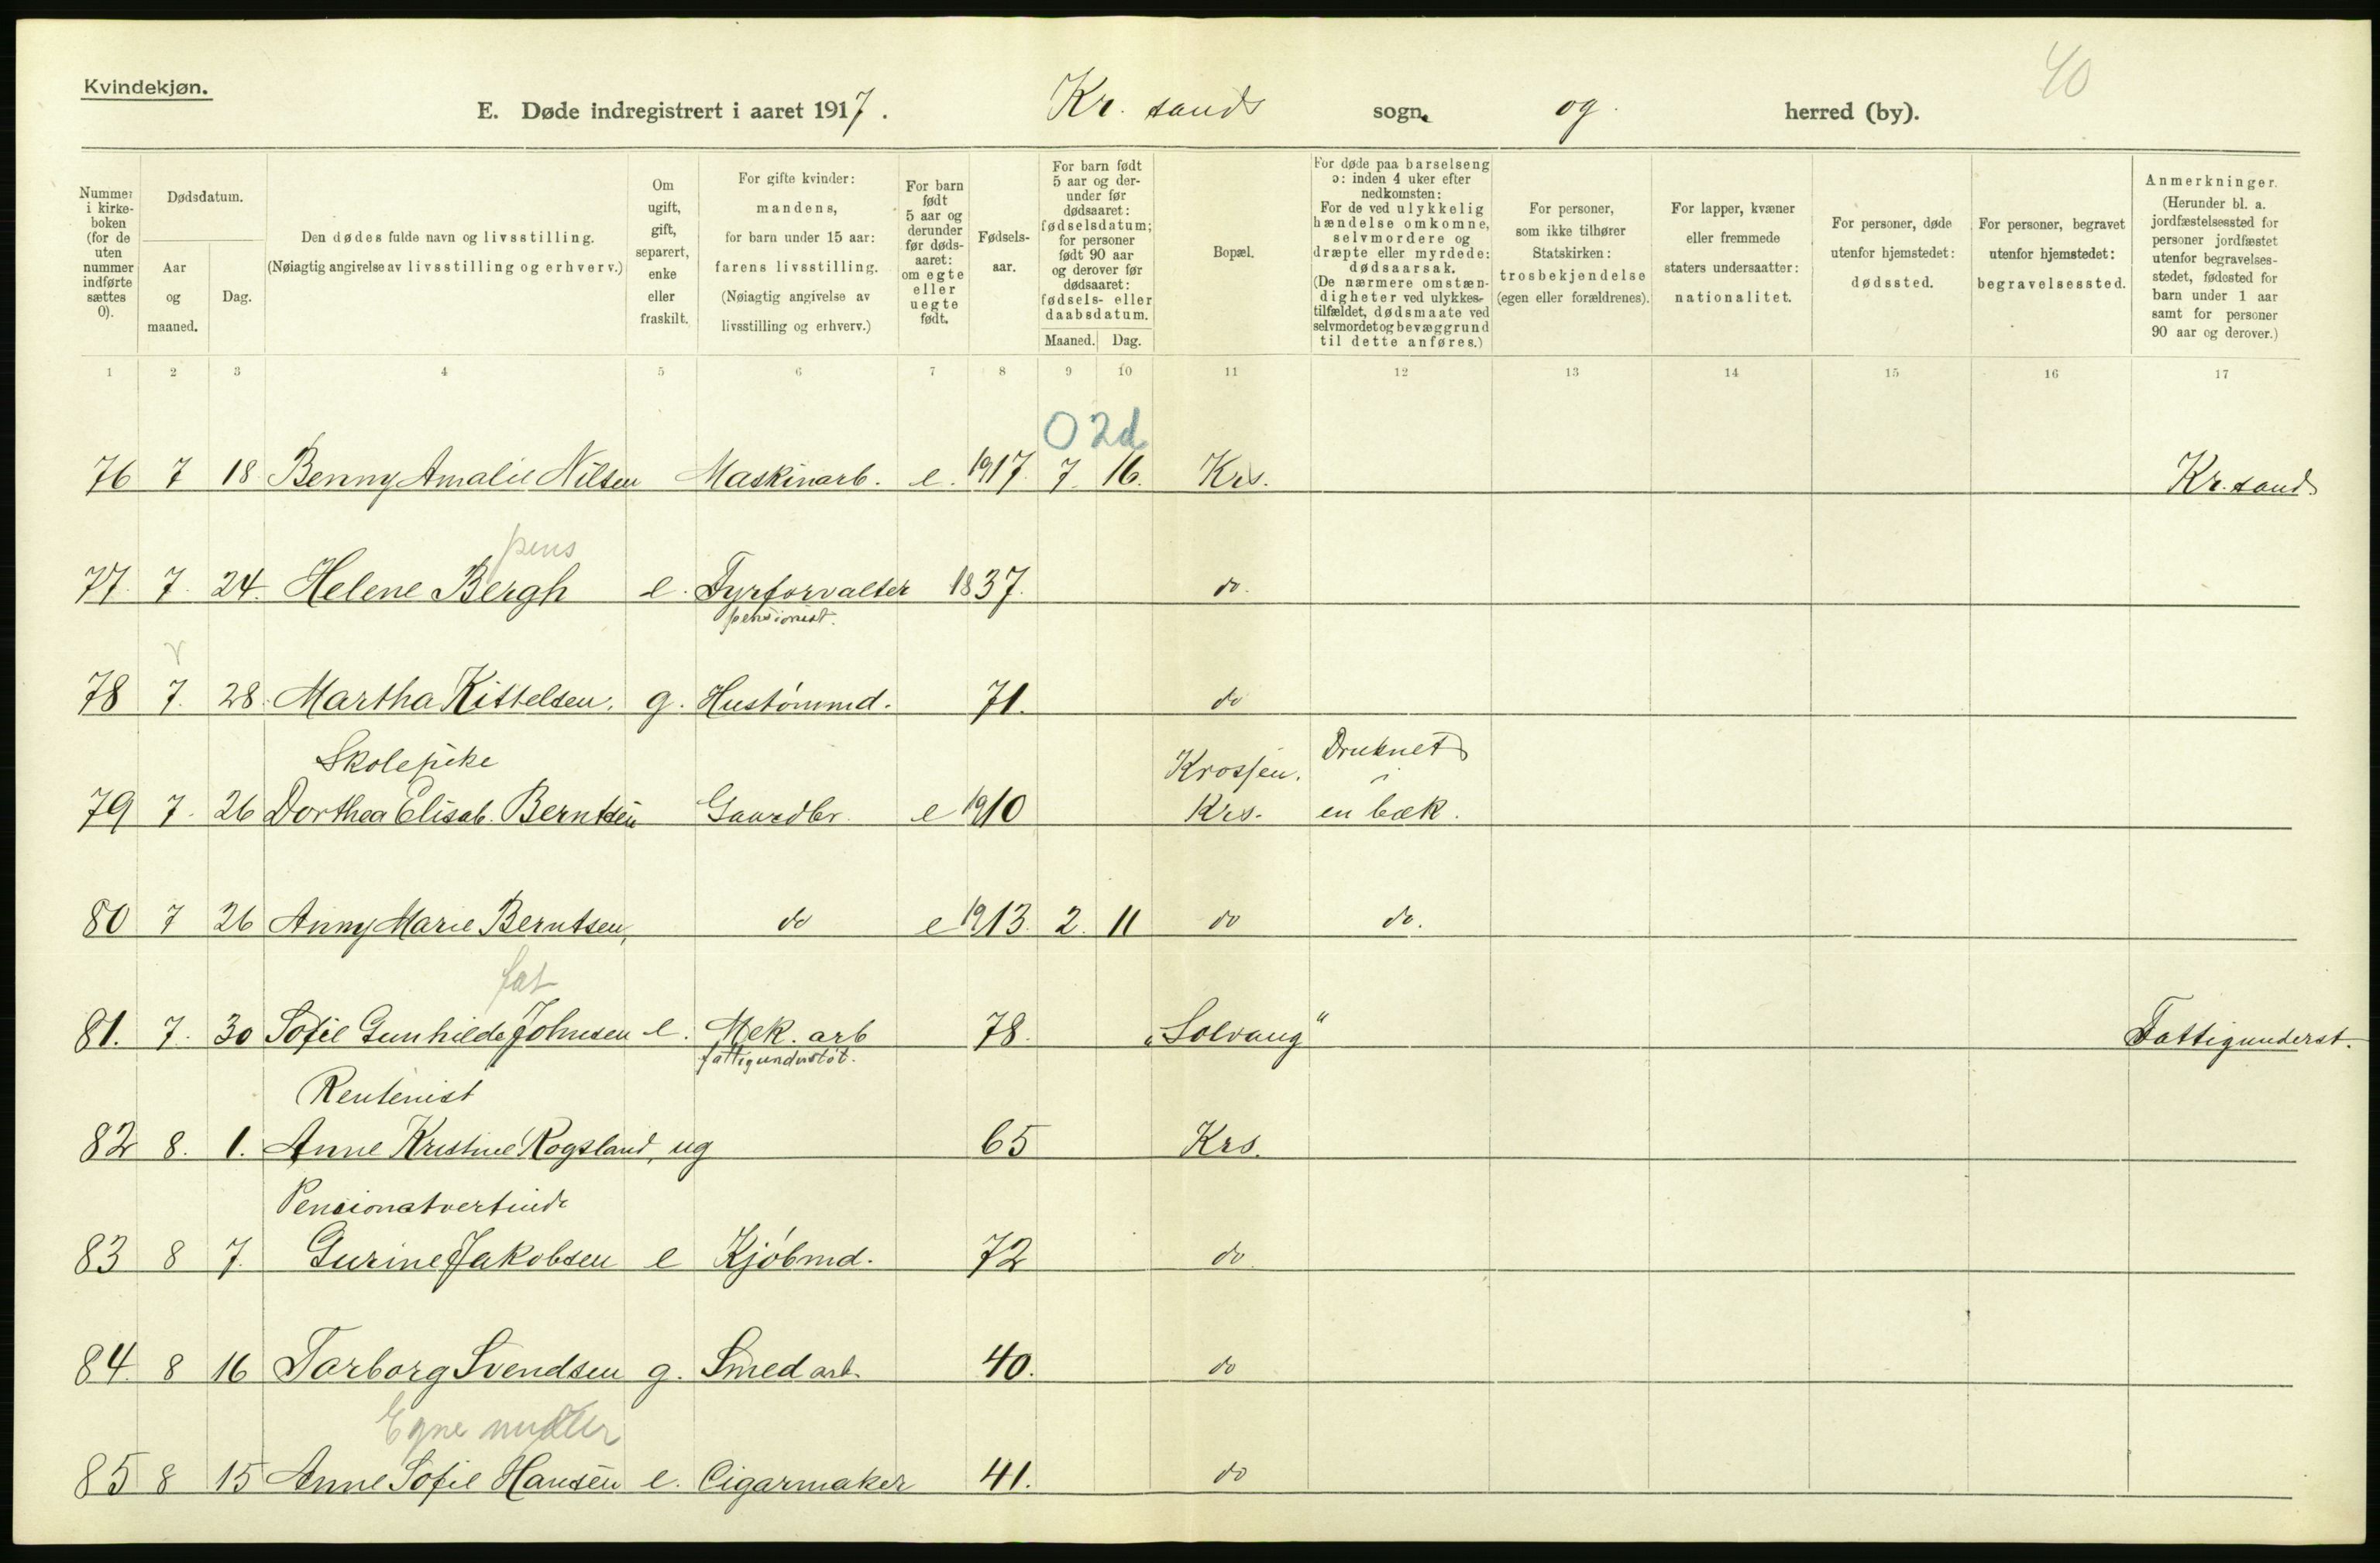 Kvindekjøn.
40
E. Døde indregistrert i aaret 1917. Kr. sands sogn. og herred (by).
Nummer i kirke-boken (for de uten nummer indførte sættes 0).
Dødsdatum.
Aar og maaned.
Dag.
Den dødes fulde navn og livsstilling.
(Nøiagtig angivelse av livsstilling og erhverv.)
Om ugift, gift, separert, enke eller fraskilt.
For gifte kvinder: mandens, for barn under 15 aar: farens livsstilling. (Nøiagtig angivelse av livsstilling og erhverv.)
For barn født 5 aar og derunder før døds-aaret: om egte eller uegte født.
Fødsels-aar.
For barn født 5 aar og der-under før dødsaaret: fødselsdatum; for personer født 90 aar og derover før dødsaaret: fødsels- eller daabsdatum.
Maaned. Dag.
Bopæl.
For døde paa barselseng ɔ: inden 4 uker efter nedkomsten: For de ved ulykkelig hændelse omkomne, selvmordere og dræpte eller myrdede: dødsaarsak. (De nærmere omstæn-digheter ved ulykkes-tilfældet, dødsmaate ved selvmordet og bevæggrund til dette anføres.)
For personer, som ikke tilhører Statskirken: trosbekjendelse (egen eller forældrenes).
For lapper, kvæner eller fremmede staters undersaatter: nationalitet.
For personer, døde utenfor hjemstedet: dødssted.
For personer, begravet utenfor hjemstedet: begravelsessted.
Anmerkninger. (Herunder bl. a. jordfæstelsessted for personer jordfæstet utenfor begravelses-stedet, fødested for barn under 1 aar samt for personer 90 aar og derover.)
1 2 3 4 5 6 7 8 9 10 11 12 13 14 15 16 17
0 2d
76 7 18 Benny Amalie Nilsen Maskinarb. e. 1917. 7. 16. Krs. Kr. sand
pens
77. 7. 24. Helene Bergh e. Fyrforvalter 1837. do.
pensionist.
78 7. 28. Martha Kittelsen. g. Hustömmd. 71. do
Skolepike Krossen. Druknet i
79 7. 26 Dorthea Elisab. Berntsen Gaardbr. e 1910 Krs. en bæk.
80 7 26 Anny Marie Berntsen, do e 1913. 2. 11 do do.
fat
81. 7. 30 Sofie Gunhilde Johnsen e. Mek. arb 78. „Solvang“ Fattigunderst.
fattigunderstöt.
Rentenist
82 8. 1. Anne Kristine Rogsland, ug 65 Krs.
Pensionatvertinde
83 8 7. Gurine Jakobsen e Kjöbmd. 72 do
84. 8 16 Tarborg Svendsen g. Smedarb. 40. do
Egne midler
85 8 15 Anne Sofie Hansen e. Cigarmaker 41. do